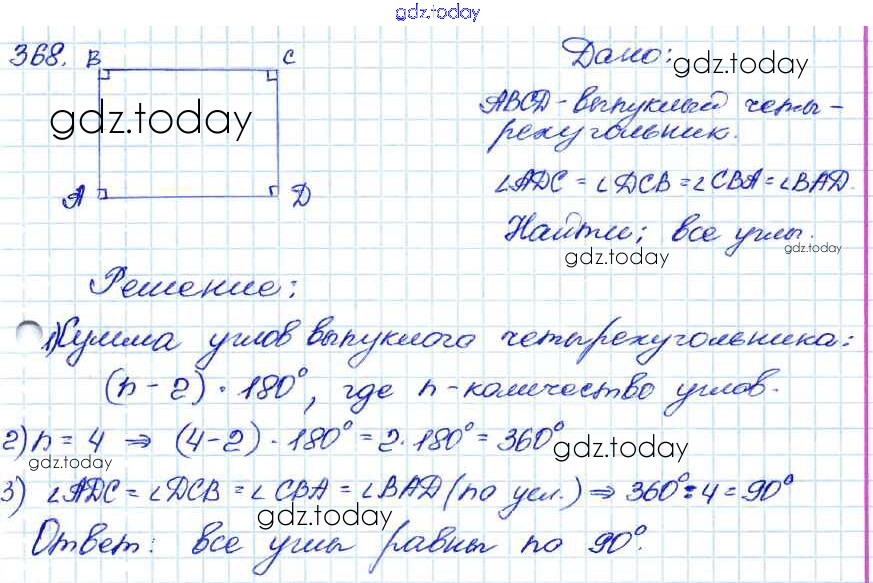 gdz.today
368. B C
Дано: gdz.today
gdz.today
ABCD - выпуклый четы-
рехугольник.
A D
∠ADC = ∠DCB = ∠CBA = ∠BAD.
Найти: все углы.
gdz.today
gdz.today
Решение:
1) Сумма углов выпуклого четырехугольника:
(n - 2) · 180°, где n - количество углов.
2) n = 4 ⇒ (4-2) · 180° = 2 · 180° = 360°
gdz.today
gdz.today
3) ∠ADC = ∠DCB = ∠CBA = ∠BAD (по усл.) ⇒ 360° : 4 = 90°
gdz.today
Ответ: все углы равны по 90°.